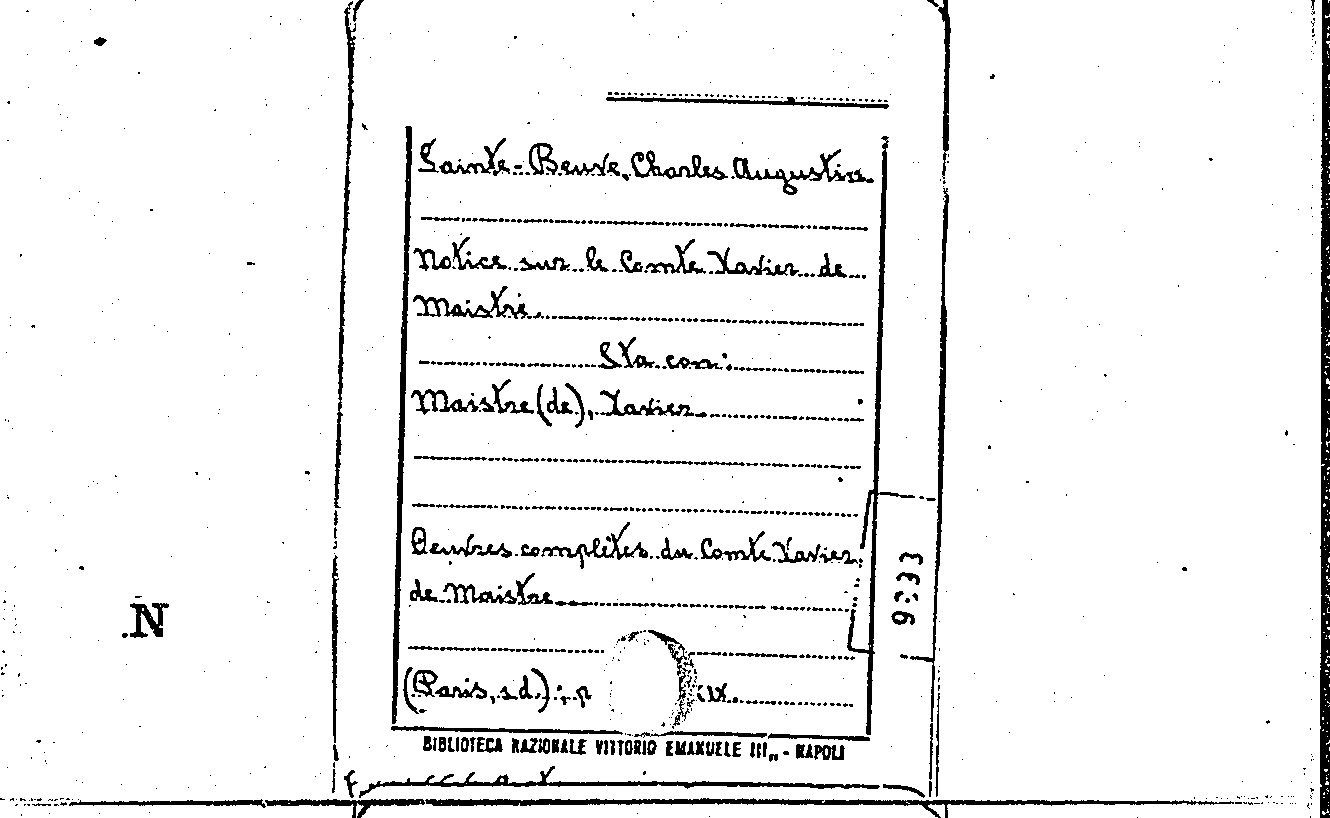 Sainte-Beuve, Charles Augustin.
Notice sur le Comte Xavier de
Maistre.
Sta con:
Maistre (de), Xavier.
Oeuvres complètes du Comte Xavier
de Maistre.
(Paris, s.d.); p
IX.
BIBLIOTECA NAZIONALE VITTORIO EMANUELE III„ - NAPOLI
N